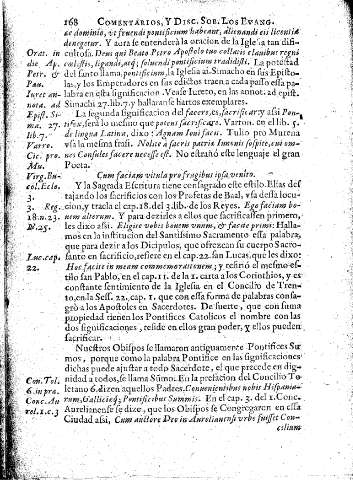 168 COMENTARIOS, Y DISC. SOB. LOS EVANG.
ac dominio, ut fruendi pontificium habeant, alienandi eis licentia
denegetur. Y aora se entenderà la oracion de la Iglesia tan difi-
Orat. in cultosa. Deus qui Beato Petro Apostolo tuo collatis clavibus regni
die Ap. cœlestis, ligandi, atq; solvendi pontificium tradidisti. La potestad
Petr. & del santo llama pontificium, la Iglesia al. Simacho en sus Episto-
Pau. las, y los Emperadores en sus edictos traen a cada passo esta pa-
Juret an- labra en esta significacion. Vease Iureto, en las annot. ad epist.
notia. ad Simachi 27. lib. 7. y hallaranse hartos exemplares.
Epist. Si- La segunda significacion del facere, es, sacrificar y assi Pon-
ma. 27. tifex, serà lo mesmo que potens sacrificare. Varron. en el lib. 5.
lib. 7. de lingua Latina, dixo: Agnam Ioni facit. Tulio pro Murena
Varro. vsa la mesma frasi. Nolite à sacris patria Iunonis sospite, cui om-
Cic. pro. nes Consules facere necesse est. No estrañó este lenguaje el gran
Mu. Poeta.
Virg. Bu- Cum faciam vitula pro frugibus ipse venito.
col. Eclo. Y la Sagrada Escritura tiene consagrado este estilo. Elias des
3. tajando los sacrificios con los Profetas de Baal, vsa desta locu-
3. Reg. cion, y traela el cap. 18. del 3. lib. de los Reyes. Ego faciam bo-
18. n. 23. uem alterum. Y para dezirles a ellos que sacrificassen primero,
D. 25. les dixo assi. Eligite vobis bouem vnum, & facite primi: Halla-
mos en la institucion del Santissimo Sacramento essa palabra,
que para dezir a los Dicipulos, que ofrezcan su cuerpo Sacro-
Luc. cap. santo en sacrificio, refiere en el cap. 22. san Lucas, que les dixo:
22. Hoc facite in meam commemorationem; y refirió el mesmo es-
tilo san Pablo, en el cap. 11. de la 1. carta a los Corinthios, y es
constante sentimiento de la Iglesia en el Concilio de Tren-
to, en la Sess. 22. cap. 1. que con essa forma de palabras consa-
grò a los Apostoles en Sacerdotes. De suerte, que con suma
propiedad tienen los Pontifices Catolicos el nombre con las
dos significaciones, reside en ellos gran poder, y ellos pueden
sacrificar.
Nuestros Obispos se llamaron antiguamente Pontifices Su
mos, porque como la palabra Pontifice en las significaciones
dichas puede ajustar a todo Sacerdote, el que precede en dig-
Con. Tol. nidad a todos, se llama Sumo. En la prefacion del Concilio To
6. in pra. letano 6. dizen aquellos Padres. Convenientibus nobis Hispania-
Conc. Au rum, Galliæq; Pontificibus Summis. En el cap. 3. del 1. Conc.
rel. 1. c. 3 Aurelianense se dize, que los Obispos se Congregaron en essa
Ciudad assi, Cum auctore Deo in Aurelianense vrbe fuisset Con-
cilium